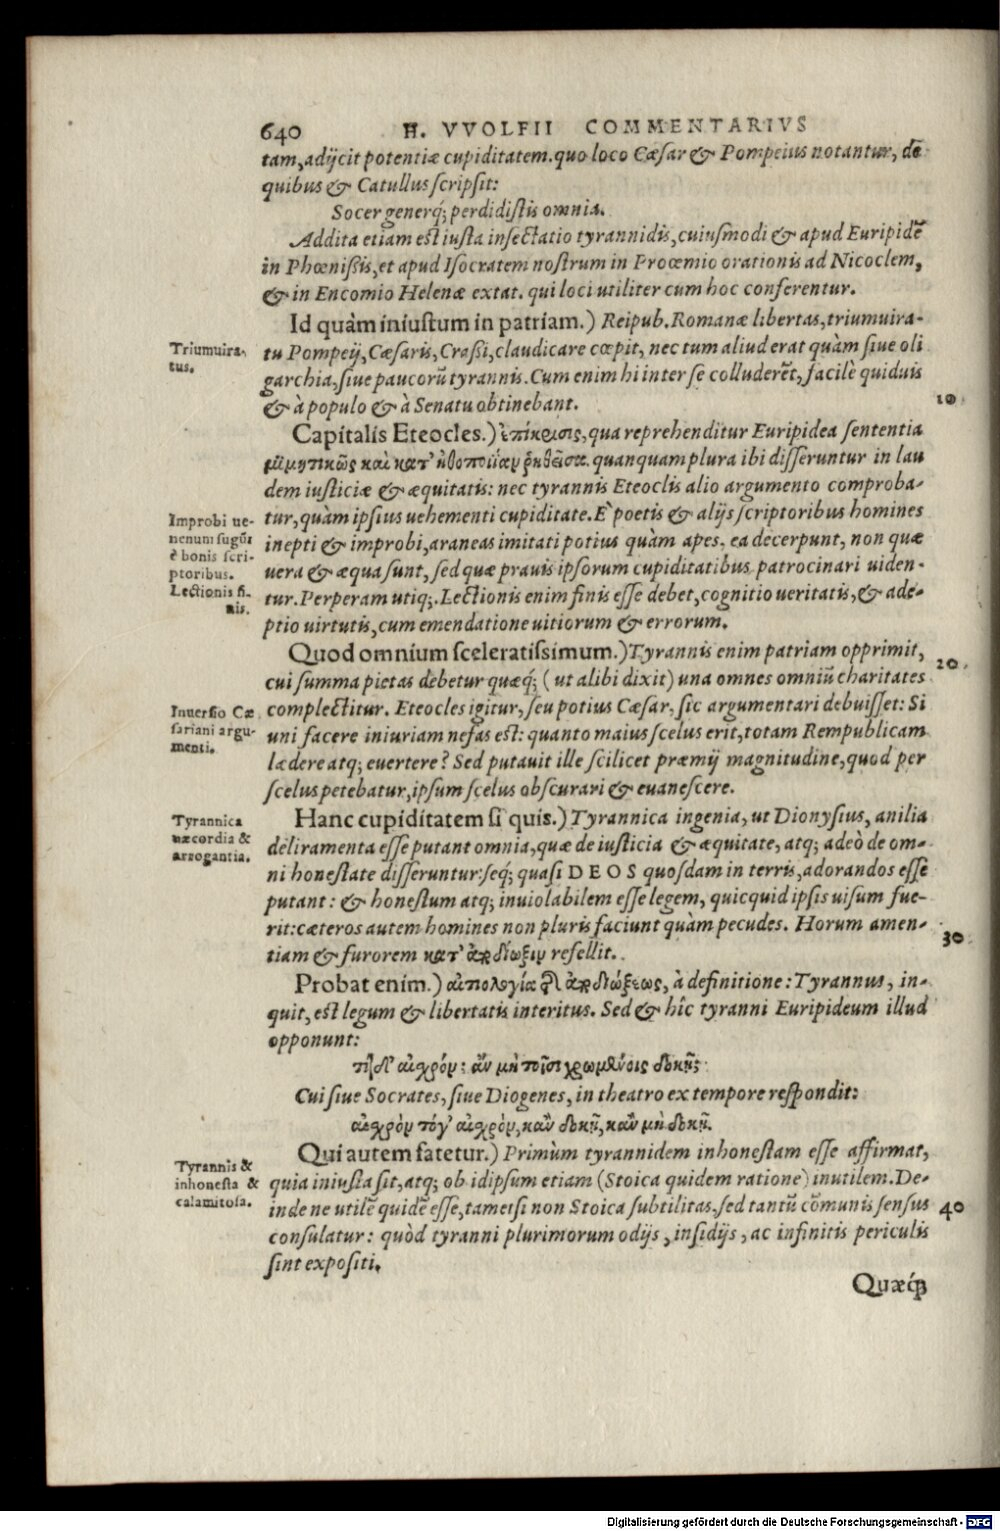 640 H. VVOLFII COMMENTARIVS
tam, adijcit potentiæ cupiditatem. quo loco Cæsar & Pompeius notantur, dē
quibus & Catullus scripsit:
Socer generq́; perdidistis omnia.
Addita etiam est iusta insectatio tyrannidis, cuiusmodi & apud Euripidē
in Phœnißis, et apud Isocratem nostrum in Proœmio orationis ad Nicoclem,
& in Encomio Helenæ extat. qui loci utiliter cum hoc conferentur.
Id quàm iniustum in patriam.) Reipub. Romanæ libertas, triumuira-
Triumuira-
tus.
tu Pompeij, Cæsaris, Craßi, claudicare cœpit, nec tum aliud erat quàm siue oli
garchia, siue paucorū tyrannis. Cum enim hi inter se colluderēt, facilè quiduis
& à populo & à Senatu obtinebant.
10
Capitalis Eteocles.) ἐπίκρισις, qua reprehenditur Euripidea sententia
μιμητικῶς καὶ κατ' ἠθοποιΐαν ῥηθεῖσα. quanquam plura ibi disseruntur in lau
dem iusticiæ & æquitatis: nec tyrannis Eteoclis alio argumento comproba-
tur, quàm ipsius uehementi cupiditate. E' poetis & alijs scriptoribus homines
Improbi ue-
nenum sugūt
è bonis scri-
ptoribus.
Lectionis fi-
nis.
inepti & improbi, araneas imitati potius quàm apes, ea decerpunt, non quæ
uera & æqua sunt, sed quæ prauis ipsorum cupiditatibus patrocinari uiden-
tur. Perperam utiq;. Lectionis enim finis esse debet, cognitio ueritatis, & ade-
ptio uirtutis, cum emendatione uitiorum & errorum.
Quod omnium sceleratissimum.) Tyrannis enim patriam opprimit,
20
cui summa pietas debetur quæq́; (ut alibi dixit) una omnes omniū charitates
complectitur. Eteocles igitur, seu potius Cæsar, sic argumentari debuisset: Si
Inuersio Cæ
sariani argu-
menti.
uni facere iniuriam nefas est: quanto maius scelus erit, totam Rempublicam
lædere atq; euertere? Sed putauit ille scilicet præmij magnitudine, quod per
scelus petebatur, ipsum scelus obscurari & euanescere.
Hanc cupiditatem si quis.) Tyrannica ingenia, ut Dionysius, anilia
Tyrannica
uæcordia &
arrogantia.
deliramenta esse putant omnia, quæ de iusticia & æquitate, atq; adeò de om-
ni honestate disseruntur: seq́; quasi DEOS quosdam in terris, adorandos esse
putant: & honestum atq; inuiolabilem esse legem, quicquid ipsis uisum fue-
rit: cæteros autem homines non pluris faciunt quàm pecudes. Horum amen-
30
tiam & furorem κατ' ἀποδίωξιν refellit.
Probat enim.) αἰτιολογία τῆς ἀποδιώξεως, à definitione: Tyrannus, in-
quit, est legum & libertatis interitus. Sed & hîc tyranni Euripideum illud
opponunt:
τί δ' αἰσχρόν; ἂν μὴ τοῖσι χρωμένοις δοκῇ;
Cui siue Socrates, siue Diogenes, in theatro ex tempore respondit:
αἰσχρὸν τόγ' αἰσχρὸν, κἂν δοκῇ, κἂν μὴ δοκῇ.
Qui autem fatetur.) Primùm tyrannidem inhonestam esse affirmat,
Tyrannis &
inhonesta &
calamitosa.
quia iniusta sit, atq; ob id ipsum etiam (Stoica quidem ratione) inutilem. De-
inde ne utilē quidē esse, tametsi non Stoica subtilitas, sed tantū cōmunis sensus
40
consulatur: quòd tyranni plurimorum odijs, insidijs, ac infinitis periculis
sint expositi.
Quæq́;
Digitalisierung gefördert durch die Deutsche Forschungsgemeinschaft - DFG